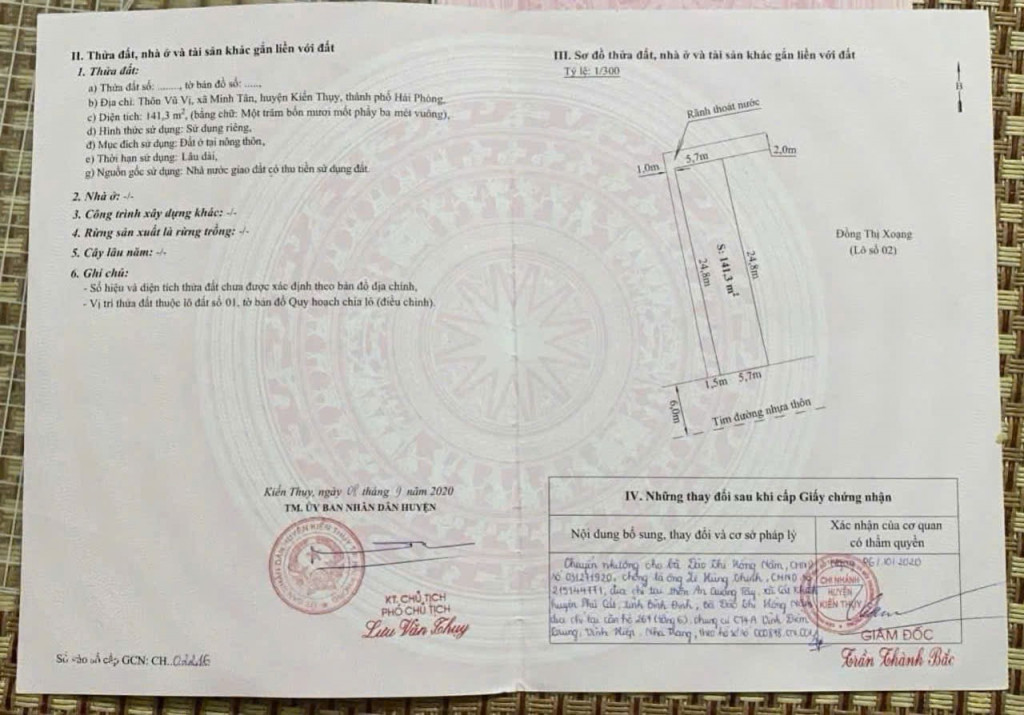 II. Thửa đất, nhà ở và tài sản khác gắn liền với đất
1. Thửa đất:
a) Thửa đất số: ........, tờ bản đồ số: .....,
b) Địa chỉ: Thôn Vũ Vị, xã Minh Tân, huyện Kiến Thụy, thành phố Hải Phòng,
c) Diện tích: 141,3 m², (bằng chữ: Một trăm bốn mươi mốt phẩy ba mét vuông),
d) Hình thức sử dụng: Sử dụng riêng,
đ) Mục đích sử dụng: Đất ở tại nông thôn,
e) Thời hạn sử dụng: Lâu dài,
g) Nguồn gốc sử dụng: Nhà nước giao đất có thu tiền sử dụng đất.
2. Nhà ở: -/-
3. Công trình xây dựng khác: -/-
4. Rừng sản xuất là rừng trồng: -/-
5. Cây lâu năm: -/-
6. Ghi chú:
- Số hiệu và diện tích thửa đất chưa được xác định theo bản đồ địa chính,
- Vị trí thửa đất thuộc lô đất số 01, tờ bản đồ Quy hoạch chia lô (điều chỉnh).
Kiến Thụy, ngày 08 tháng 9 năm 2020
TM. ỦY BAN NHÂN DÂN HUYỆN
KT. CHỦ TỊCH
PHÓ CHỦ TỊCH
Lưu Văn Thụy
Số vào sổ cấp GCN: CH 02216
III. Sơ đồ thửa đất, nhà ở và tài sản khác gắn liền với đất
Tỷ lệ: 1/300
B
Rãnh thoát nước
1,0m
5,7m
2,0m
24,8m
S: 141,3 m²
24,8m
Đồng Thị Xoạng
(Lô số 02)
1,5m
5,7m
6,0m
Tim đường nhựa thôn
IV. Những thay đổi sau khi cấp Giấy chứng nhận
Nội dung bổ sung, thay đổi và cơ sở pháp lý
Xác nhận của cơ quan
có thẩm quyền
Chuyển nhượng cho bà Đào Thị Hồng Nấm, CMND
số 031271920, chồng là ông Lê Hùng Thịnh, CMND
địa chỉ tại thôn An Quang Tây, xã Cát Khánh
huyện Phù Cát, tỉnh Bình Định, bà Đào Thị Hồng Nấm
địa chỉ tại căn hộ chung cư CT4A
Nha Trang, theo hồ sơ
/10/2020
CHI NHÁNH
HUYỆN
KIẾN THỤY
GIÁM ĐỐC
Trần Thành Bắc